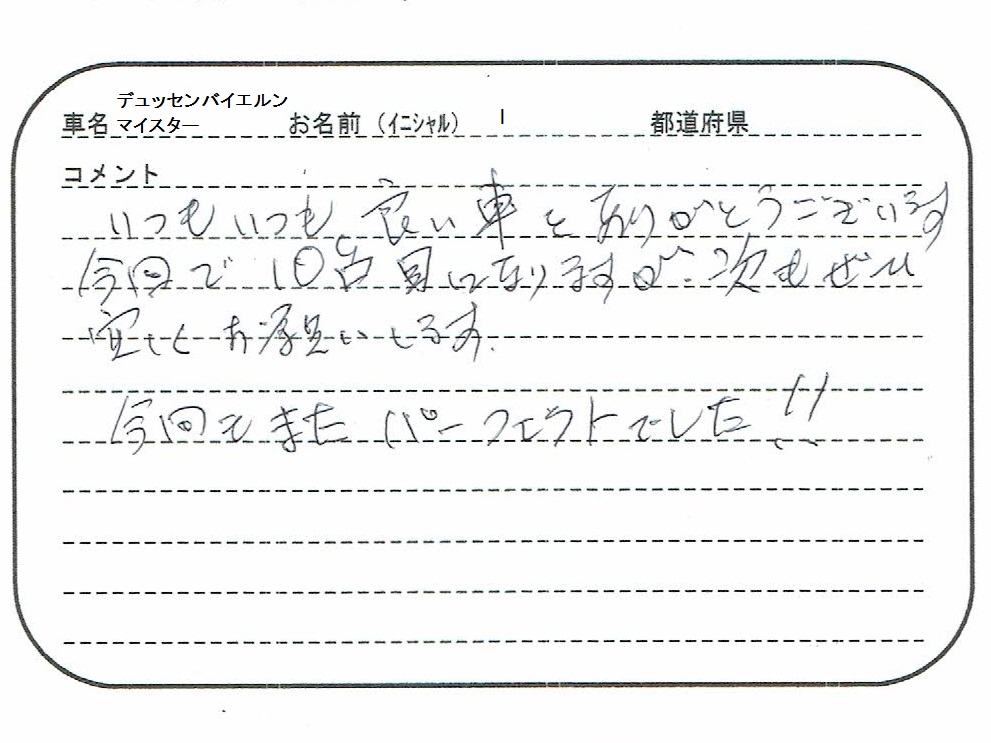 デュッセンバイエルン
車名 マイスター お名前（ｲﾆｼｬﾙ） I 都道府県
コメント
いつもいつも良い車をありがとうございます
今回で10台目になりますが、次もぜひ
宜しくお願いします。
今回もまたパーフェクトでした!!